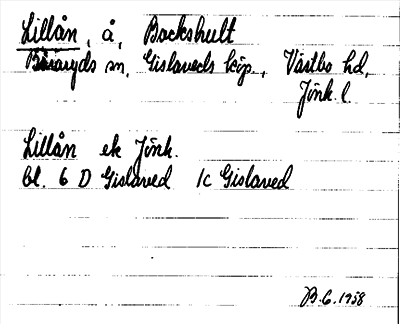 Lillån, å, Backshult
Båraryds sn, Gislaveds köp., Västbo hd,
Jönk. l.
Lillån ek Jönk.
bl. 6 D Gislaved 1c Gislaved
B.G. 1958